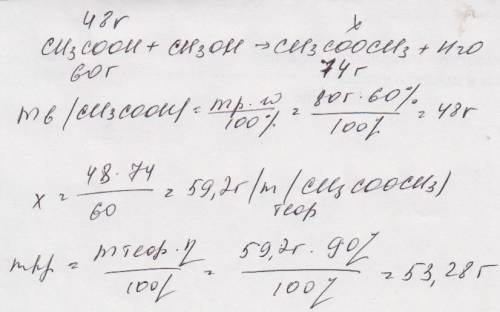 48г x
CH3COOH + CH3OH → CH3COOCH3 + H2O
60г 74г
mв/CH3COOH/ = mр·w/100% = 80г·60%/100% = 48г
x = 48·74/60 = 59,2г /m теор /CH3COOCH3/
mпр. = mтеор·η/100% = 59,2г·90%/100% = 53,28г